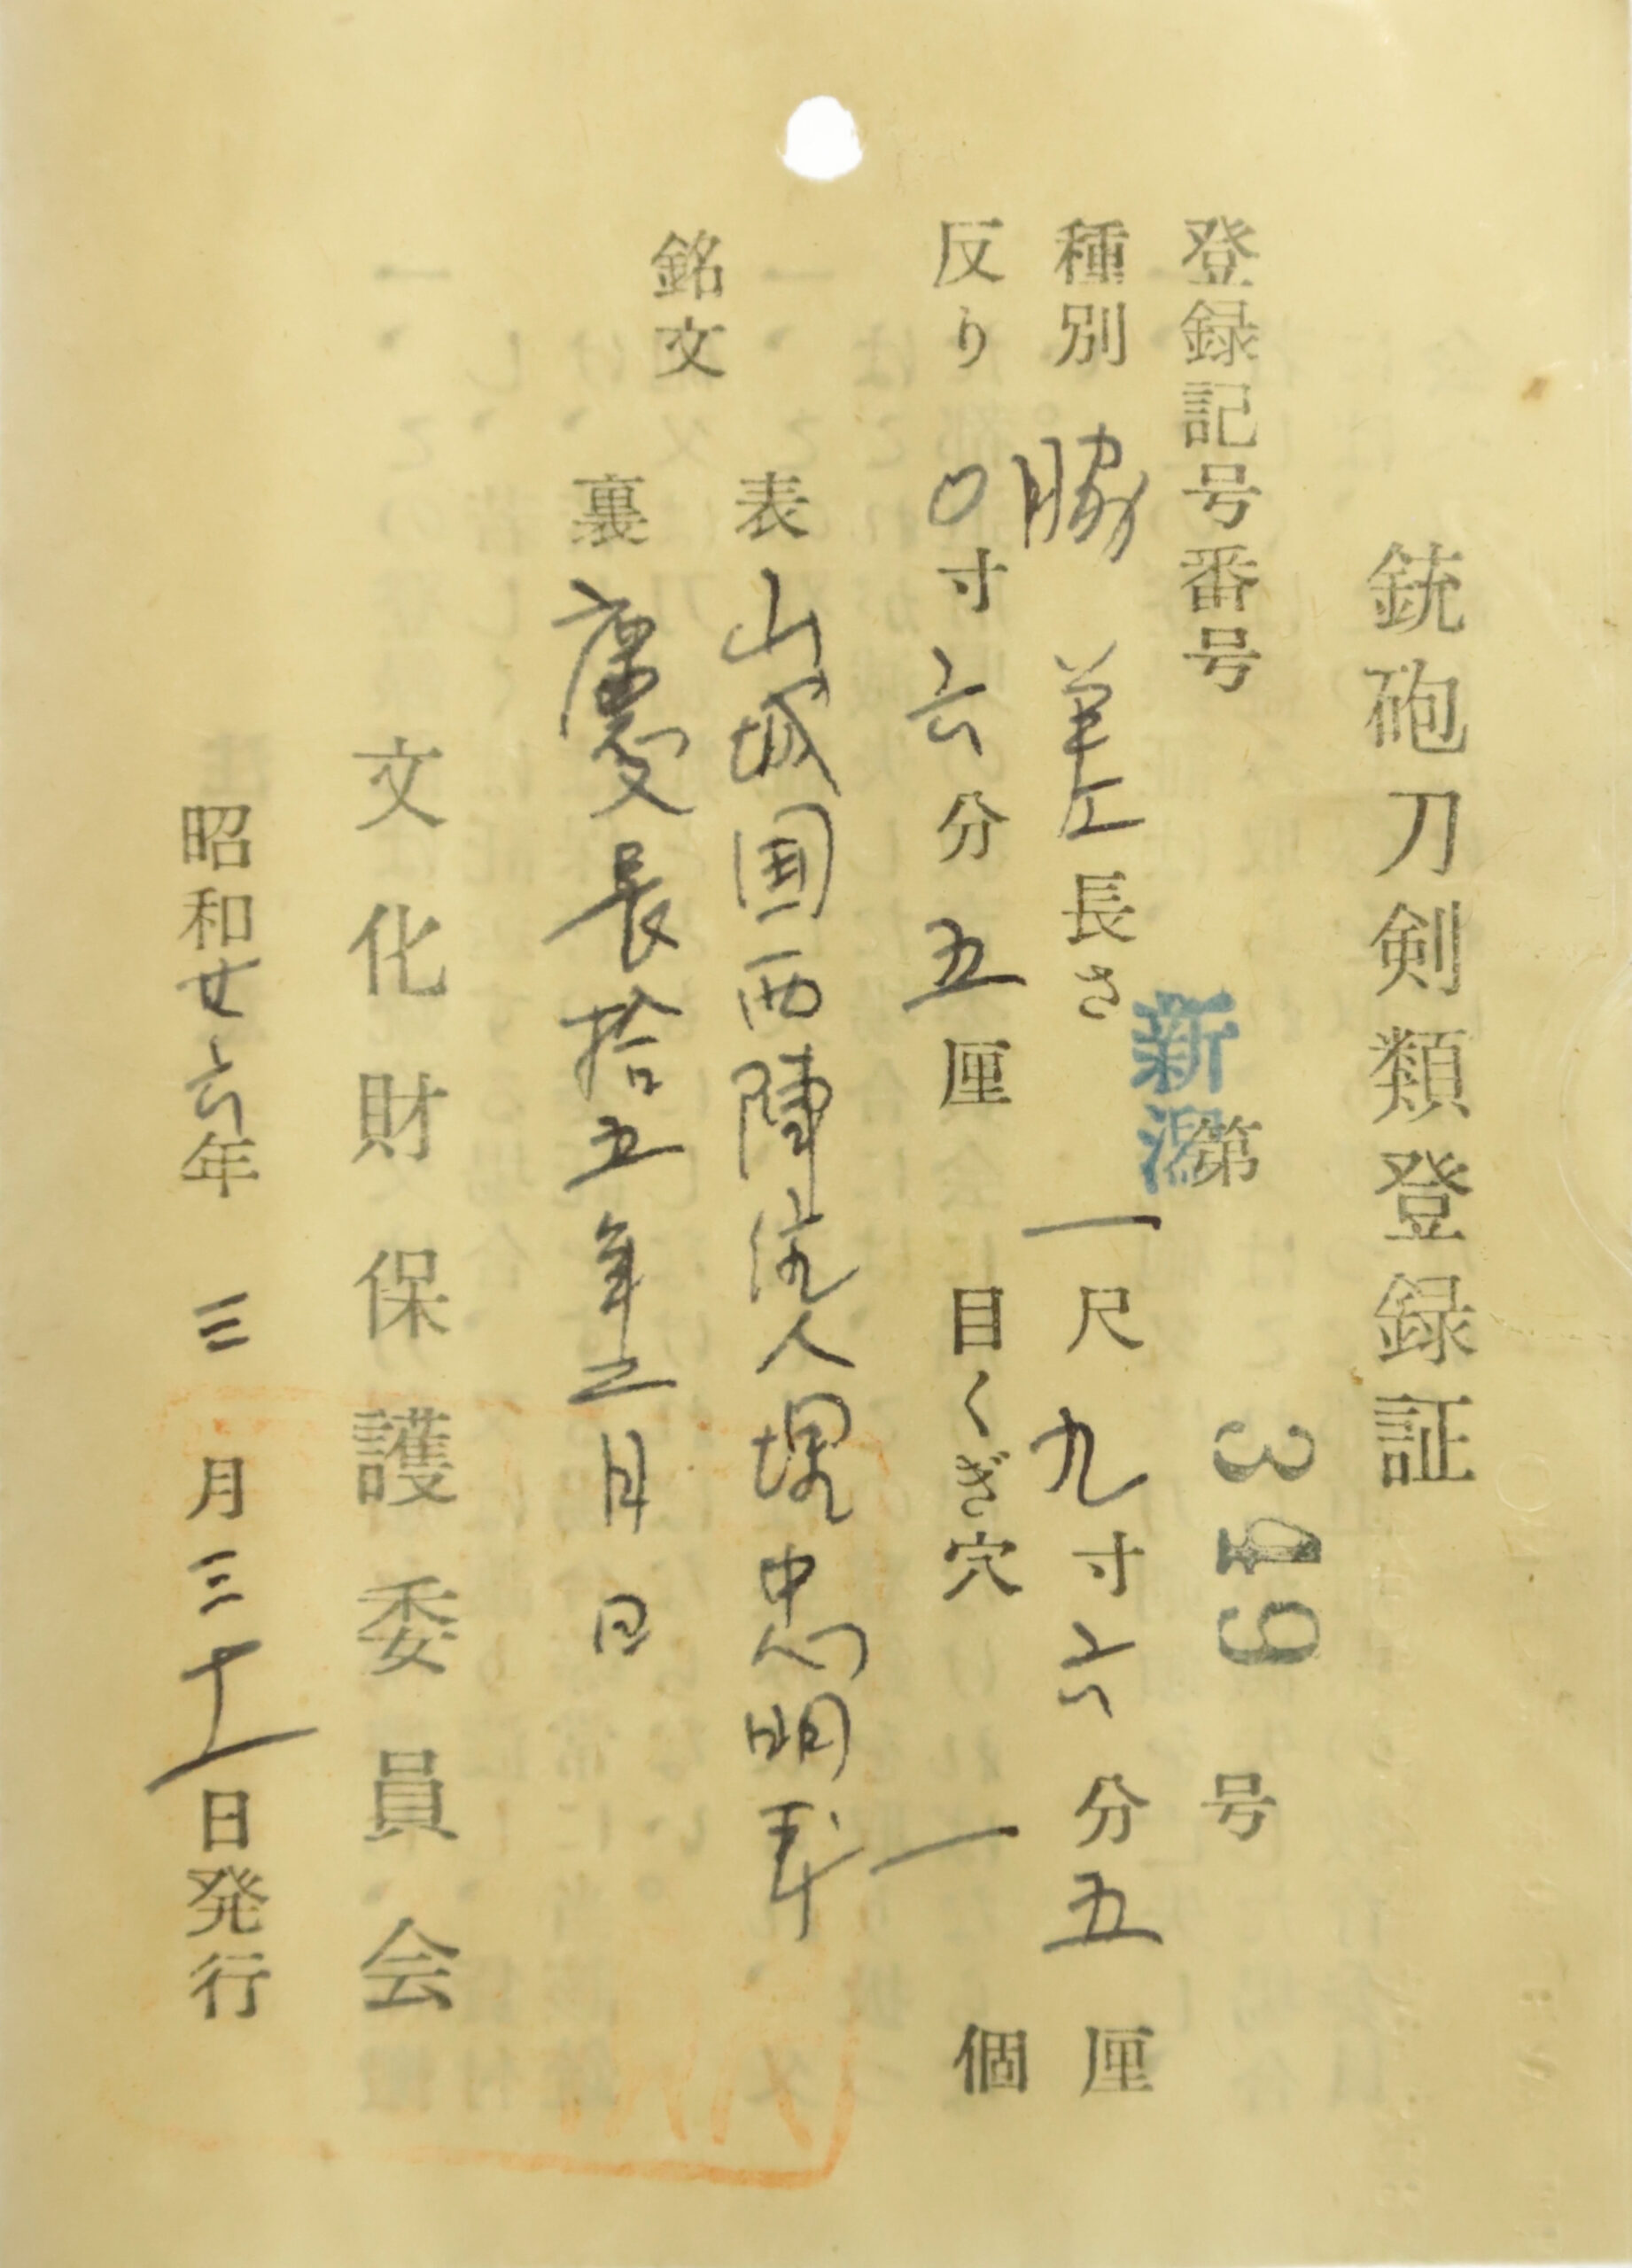 銃砲刀剣類登録証
登録記号番号 新潟 第 349 号
種別 脇差 長さ 一尺九寸六分五厘
反り 〇寸六分五厘 目くぎ穴 一個
銘文
表 山城国西陣住人埋忠明寿
裏 慶長拾五年二月日
文化財保護委員会
昭和廿六年三月三十一日発行